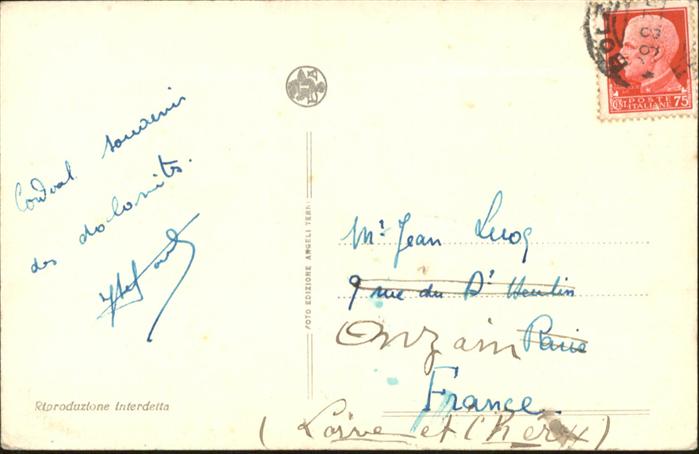 Cordial souvenir
des dolomites.
Mr Jean Lucq
9 rue du Dr Heulin
Onzain Paris
France
(Loire et Cher)
FOTO EDIZIONE ANGELI TERNI
Riproduzione Interdetta
POSTE
ITALIANE
75